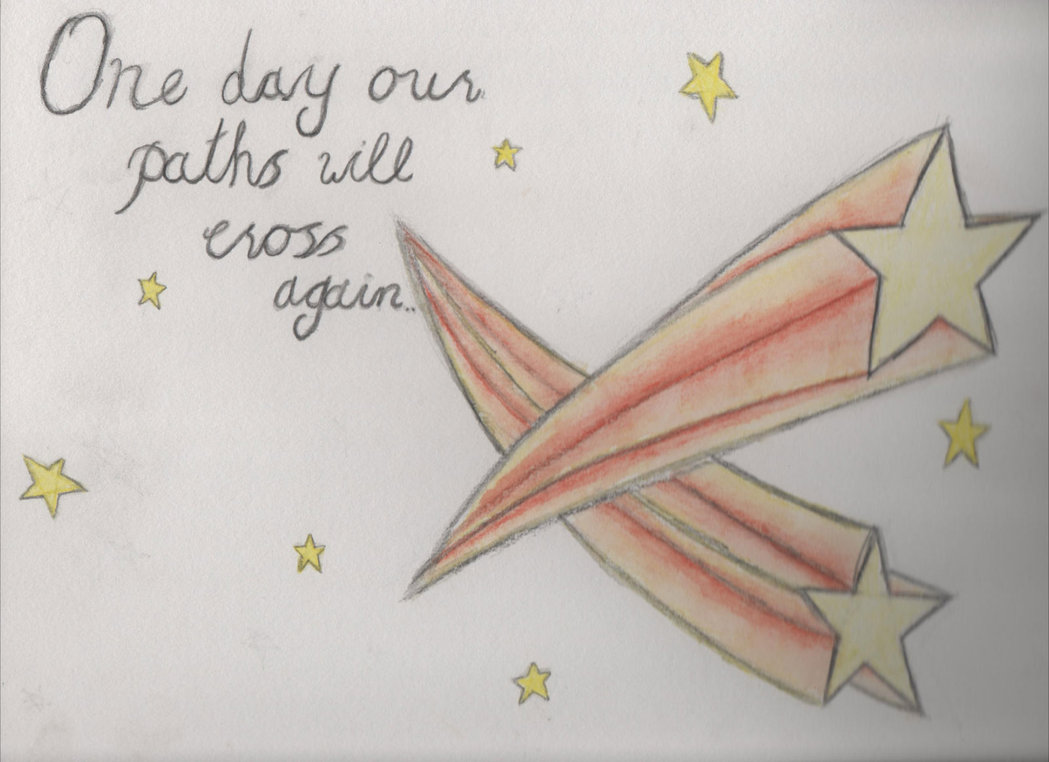 One day our
paths will
cross
again..